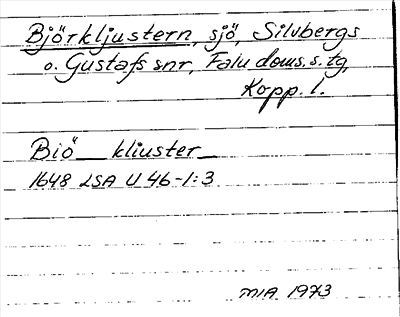 Björkljustern, sjö, Silvbergs
o. Gustafs snr, Falu doms.s. tg,
Kopp. l.
Biö kliuster
1648 LSA U 46-1:3
MIA 1973